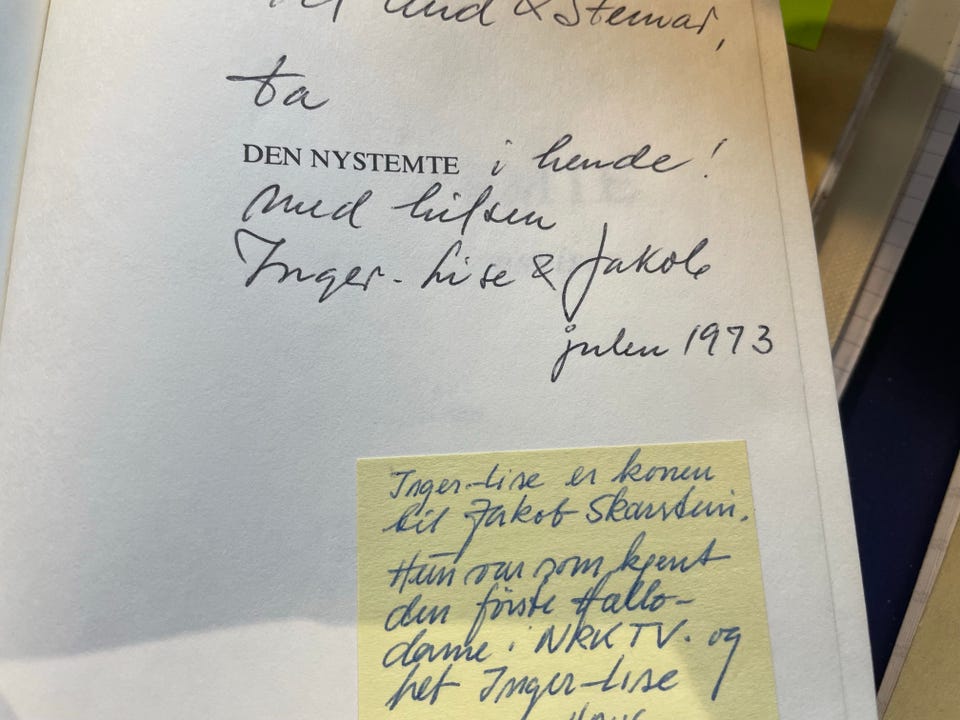 & Steinar,
ta
DEN NYSTEMTE i hende!
Med hilsen
Inger-Lise & Jakob
julen 1973
Inger-Lise er konen
til Jakob Skarstein.
Hun var som kjent
den første Hallo-
dame i NRK TV. og
het Inger-Lise